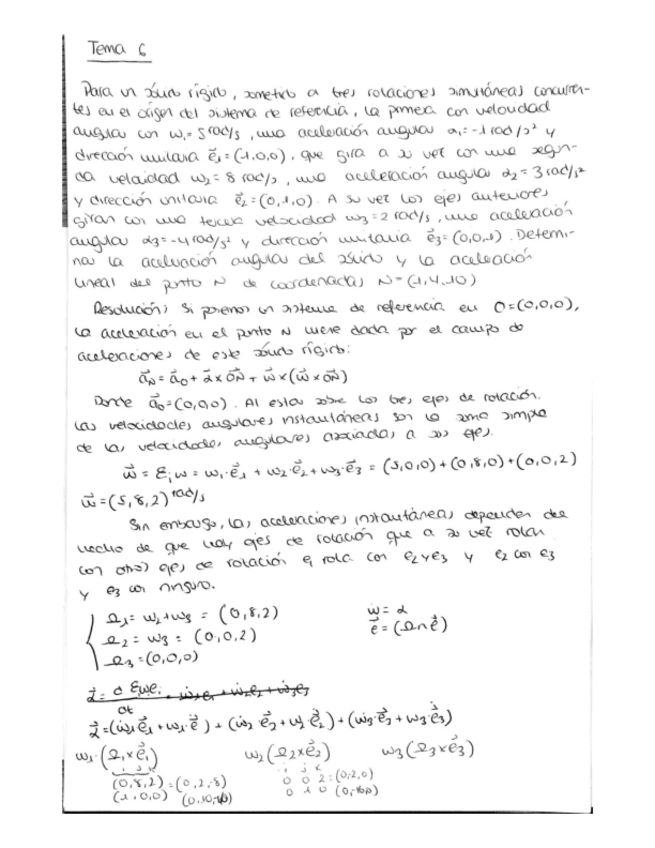 Tema 6
Para un sólido rígido, sometido a tres rotaciones simultáneas concurren-
tes en el origen del sistema de referencia, la primera con velocidad
angular con ω₁= 5 rad/s, una aceleración angular α₁= -1 rad/s² y
dirección unitaria e⃗₁=(1,0,0), que gira a su vez con una segun-
da velocidad ω₂= 8 rad/s, una aceleración angular α₂= 3 rad/s²
y dirección unitaria e⃗₂=(0,1,0). A su vez los ejes anteriores
giran con una tercera velocidad ω₃= 2 rad/s, una aceleración
angular α₃=-4 rad/s² y dirección unitaria e⃗₃=(0,0,1). Determi-
nar la aceleración angular del sólido y la aceleración
lineal del punto N de coordenadas N=(1,4,10)
Resolución: Si ponemos un sistema de referencia en O=(0,0,0),
la aceleración en el punto N viene dada por el campo de
aceleraciones de este sólido rígido:
a⃗N= a⃗o + α⃗ x ON + ω⃗ x (ω⃗ x ON)
Donde a⃗o=(0,0,0). Al estar sobre los tres ejes de rotación.
Las velocidades angulares instantáneas son la suma simple
de las velocidades angulares asociadas a sus ejes.
ω⃗ = Σᵢω = ω₁·e⃗₁ + ω₂·e⃗₂ + ω₃·e⃗₃ = (5,0,0)+(0,8,0)+(0,0,2)
ω⃗=(5,8,2) rad/s
Sin embargo, las aceleraciones instantáneas dependen del
hecho de que hay ejes de rotación que a su vez rotan
con otros ejes de rotación e₁ rota con e₂ y e₃ y e₂ con e₃
y e₃ con ninguno.
Ω₁= ω₂+ω₃ = (0,8,2) ω̇ = α
Ω₂= ω₃ = (0,0,2) ė = (Ω∧e⃗)
Ω₃=(0,0,0)
α⃗ = d Σωᵢeᵢ = ω̇₁e₁ + ω̇₂e₂ + ω̇₃e₃
dt
α⃗=(ω̇₁e⃗₁+ω₁·ė) + (ω̇₂·e⃗₂+ω₂·ė₂)+(ω̇₃·e⃗₃+ω₃·ė₃)
ω₁·(Ω₁xe⃗₁) ω₂(Ω₂xe⃗₂) ω₃(Ω₃xe⃗₃)
i j k i j k
(0,8,2)=(0,2,-8) 0 0 2=(0,-2,0)
(1,0,0) 0 1 0